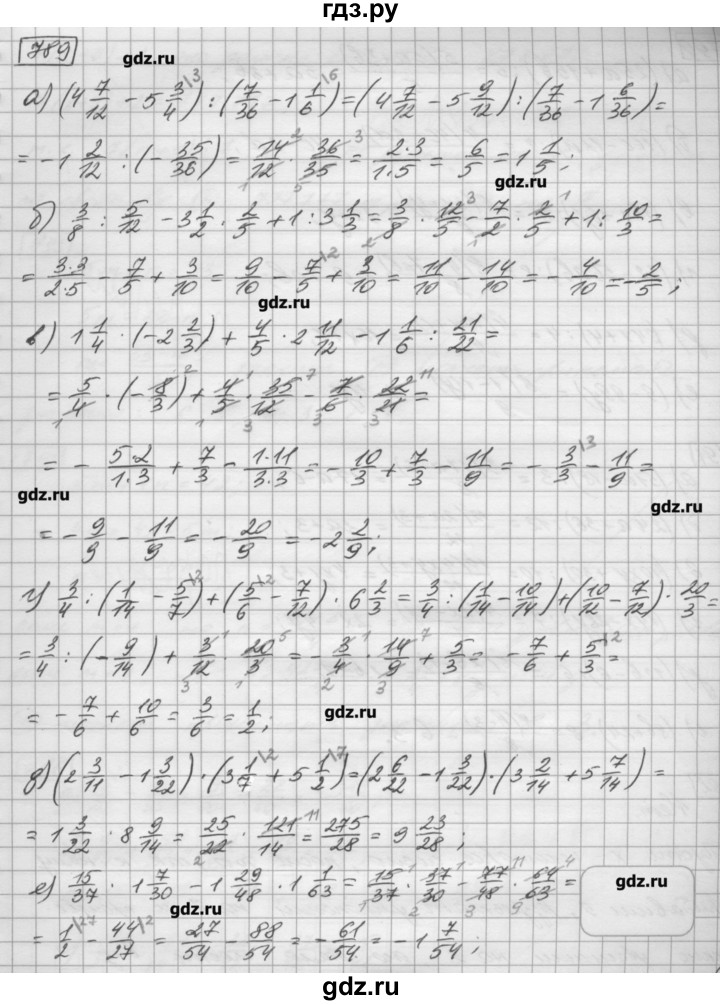 гдз.ру
789
gdz.ru
а) (4 7/12 - 5 3/4 \3) : (7/36 - 1 1/6 \6) = (4 7/12 - 5 9/12) : (7/36 - 1 6/36) =
= -1 2/12 : (-35/36) = 14/12 · 36/35 = 2·3/1·5 = 6/5 = 1 1/5;
gdz.ru
б) 3/8 : 5/12 - 3 1/2 · 2/5 + 1 : 3 1/3 = 3/8 · 12/5 - 7/2 · 2/5 + 1 : 10/3 =
= 3·3/2·5 - 7/5 + 3/10 = 9/10 - 7/5 \2 + 3/10 = 11/10 - 14/10 = -4/10 = -2/5;
gdz.ru
в) 1 1/4 · (-2 2/3) + 4/5 · 2 11/12 - 1 1/6 : 21/22 =
= 5/4 · (-8/3) + 4/5 · 35/12 - 7/6 · 22/21 =
= - 5·2/1·3 + 7/3 - 1·11/3·3 = -10/3 + 7/3 - 11/9 = -3/3 \3 - 11/9 =
gdz.ru
gdz.ru
= -9/9 - 11/9 = -20/9 = -2 2/9;
г) 3/4 : (1/14 - 5/7 \2) + (5/6 \2 - 7/12) · 6 2/3 = 3/4 : (1/14 - 10/14) + (10/12 - 7/12) · 20/3 =
= 3/4 : (-9/14) + 3/12 · 20/3 = -3/4 · 14/9 + 5/3 = -7/6 + 5/3 \2 =
= -7/6 + 10/6 = 3/6 = 1/2;
gdz.ru
д) (2 3/11 - 1 3/22) · (3 1/7 \2 + 5 1/2 \7) = (2 6/22 - 1 3/22) · (3 2/14 + 5 7/14) =
= 1 3/22 · 8 9/14 = 25/22 · 121/14 = 275/28 = 9 23/28;
е) 15/37 · 1 7/30 - 1 29/48 · 1 1/63 = 15/37 · 37/30 - 77/48 · 64/63 =
gdz.ru
gdz.ru
= 1/2 \27 - 44/27 \2 = 27/54 - 88/54 = -61/54 = -1 7/54;
gdz.ru